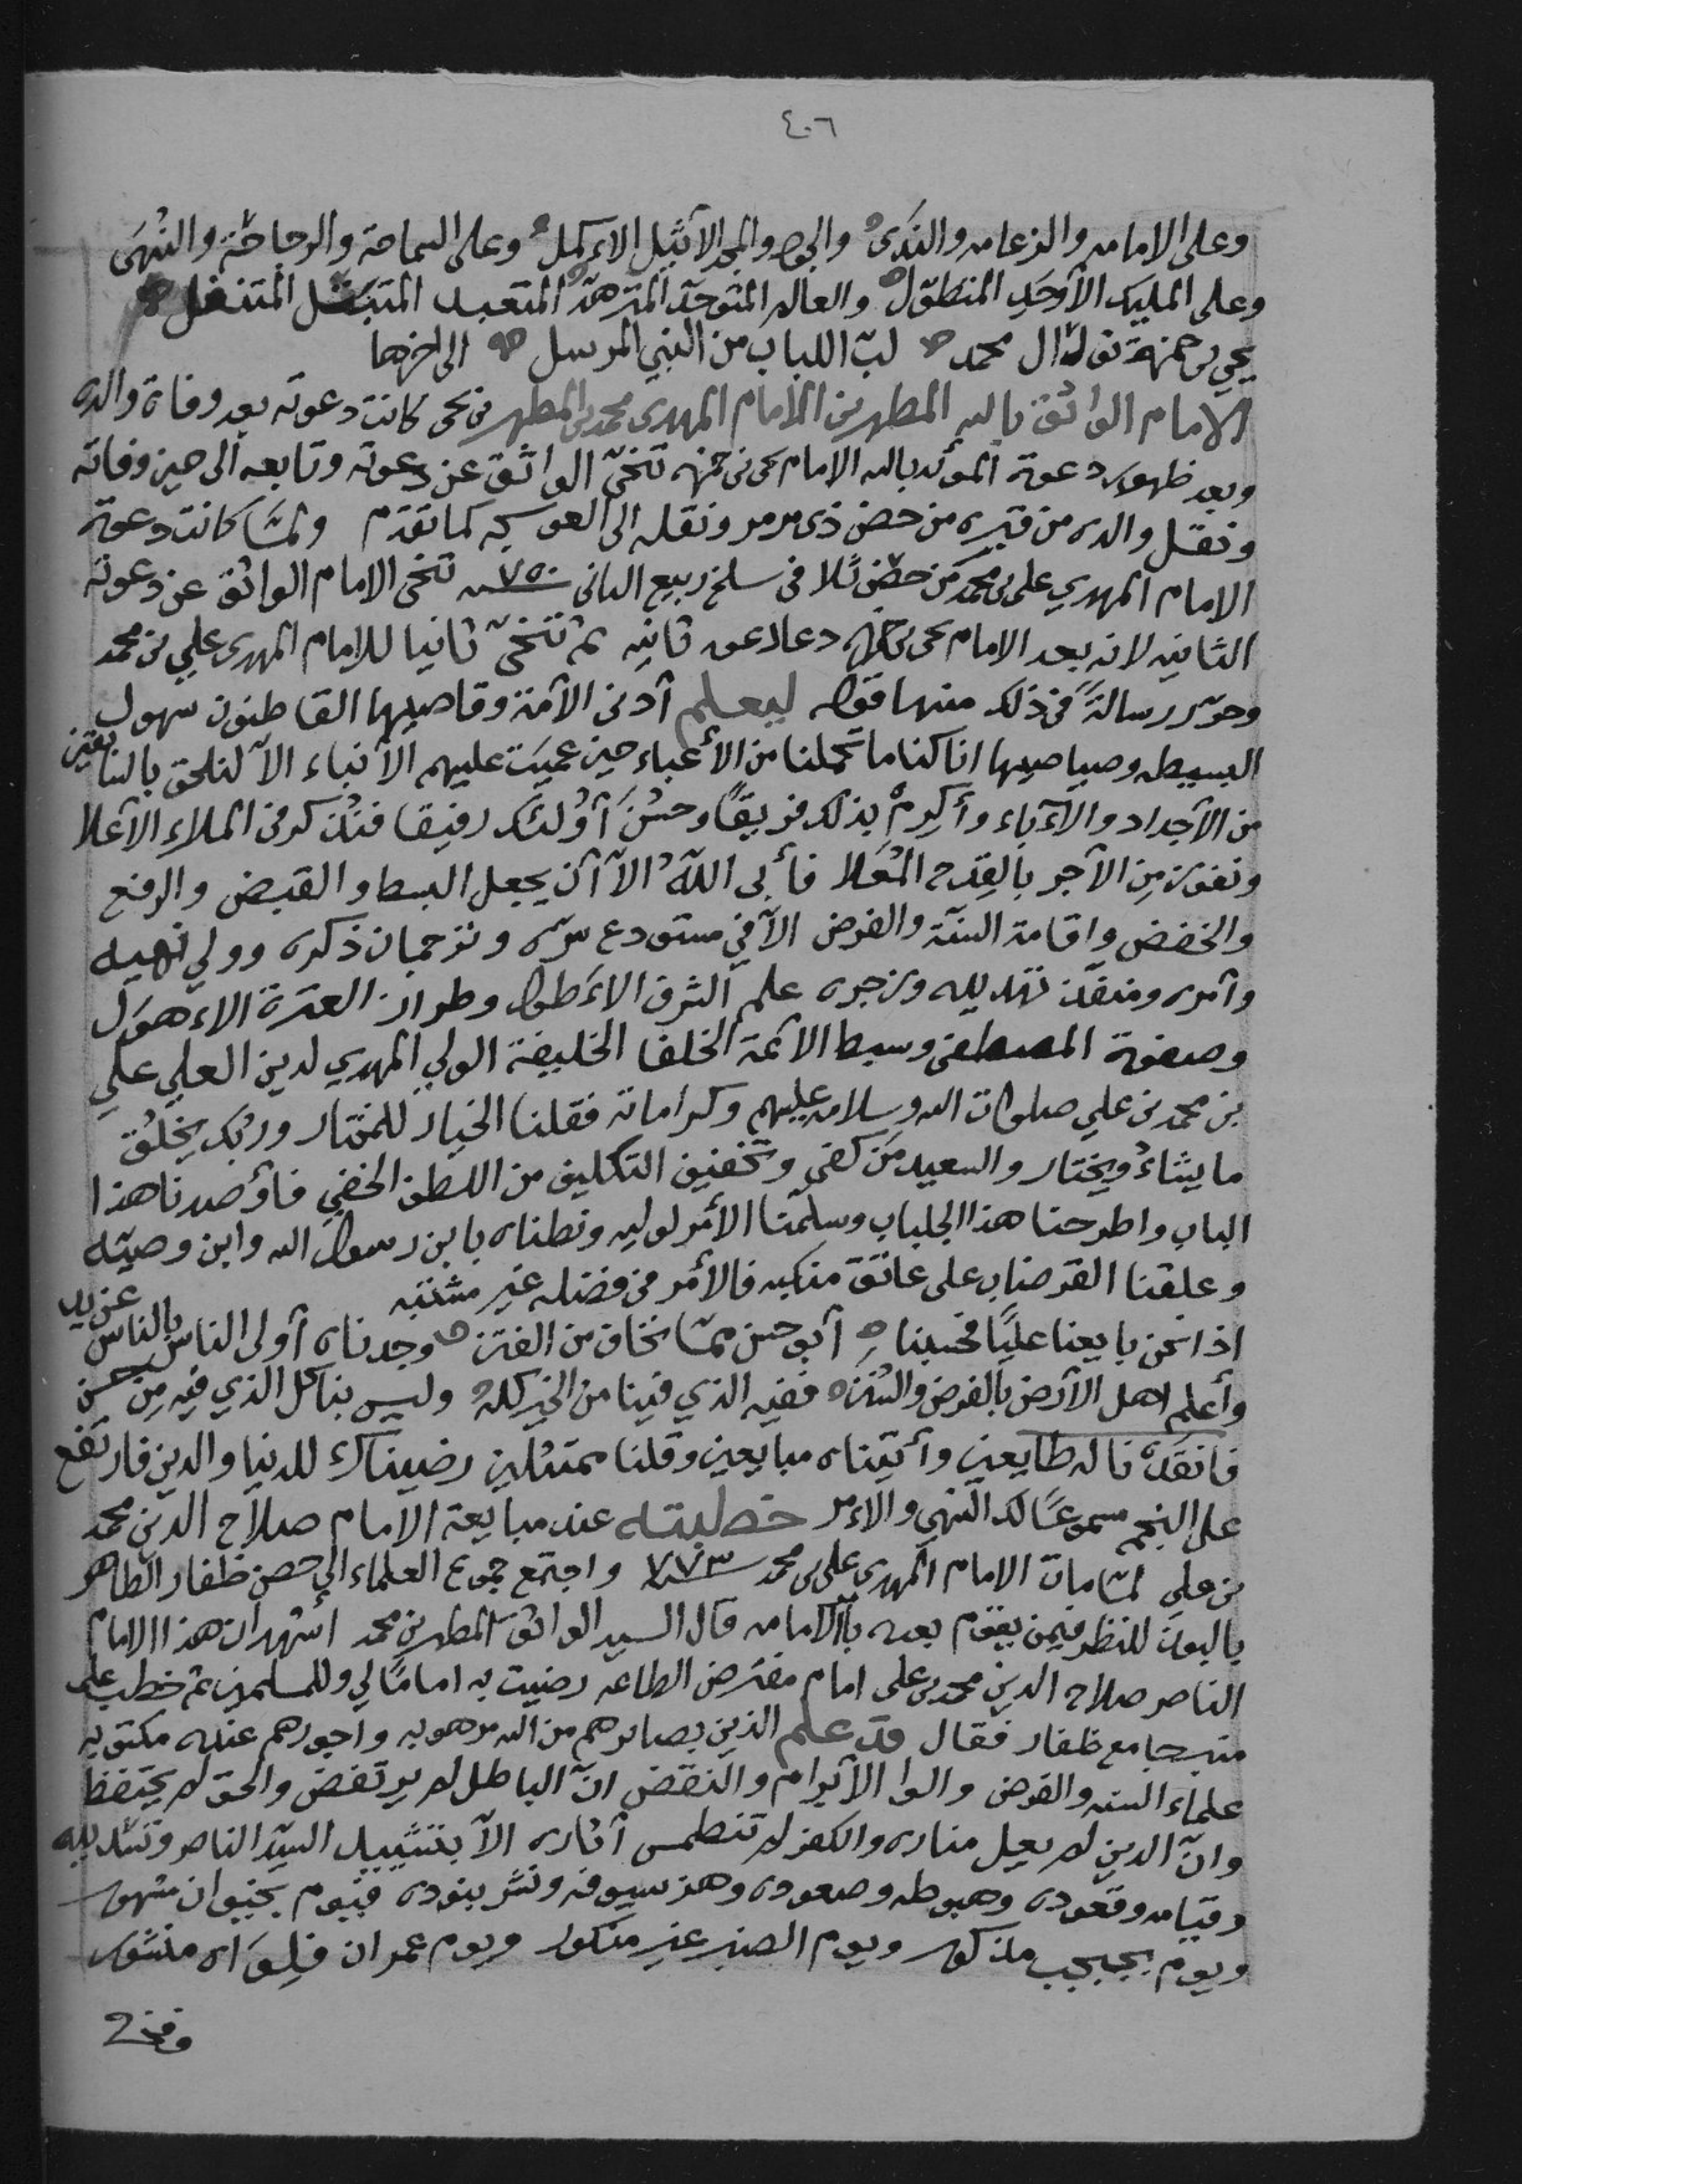 ٤٠٦
وعلى الامامه والزعامه والندَى والجود والمجد الأثيل الأكمل وعلى السماحة والرجاحة والنُهَى
وعلى المليك الأوحَدِ المتطوّل والعالم المتوحّد المتزهّد المتعبد المتبتّل المتنفل
يحيى بن حمزة نور آل محمد لبّ اللباب من النبي المرسل الى اخرها
الامام الواثق بالله المطهر بن الامام المهدي محمد بن المطهر بن يحيى كانت دعوته بعد وفاة والده
وبعد ظهور دعوة المؤيد بالله الامام يحيى بن حمزه تنحّى الواثق عن دعوته وتابعه الى حين وفاته
ونقل والده من قبره من حصن ذي مرمر ونقله الى العوسجه كما تقدم ولمّا كانت دعوة
الامام المهدي علي بن محمد من حصن ثلا في سلخ ربيع الثاني سنة ٧٥٠ تنحى الامام الواثق عن دعوته
الثانيه لانه بعد الامام يحيى بن حمزه دعا دعوه ثانيه ثم تنحّى ثانيا للامام المهدي علي بن محمد
وحرّر رسالةً في ذلك منها قوله ليعلم أدنى الأمّة وقاصيها القاطنون سهول
البسيطه وصياصيها انا كنا ما تحملنا من الأعباء حين عميَت عليهم الأنباء الاّ لنلحق بالسابقين
من الأجداد والآباء وأكرِمْ بذلك فريقًا وحسُنَ أولئك رفيقا فنُذكر في الملاءِ الأعلا
ونفوز من الأجر بالقِدح المُعَلا فأبى اللهُ الاّ أن يجعل البسط والقبض والرفع
والخفض واقامة السنّة والفرض الاّ في مستودع سرّه وترجمان ذكره وولي نهيه
وأمره ومنفّذ تهديده وزجره علم الشرف الأطول وطراز العترة الأهوَل
وصفوة المصطفى وسبط الأئمّة الخلفا الخليفة الولي المهدي لدين العلي علي
بن محمد بن علي صلوات الله وسلامه عليهم وكراماته فقلنا الخيار للمختار وربك يخلُق
ما يشاءُ ويختار والسعيد مَن كُفي وتخفيف التكليف من اللطف الخفي فأوصدنا هذا
الباب واطرحنا هذا الجلباب وسلّمنا الأمر لوليه ونطناه بابن رسول الله وابن وصيّه
وعلقنا القرضاب على عاتق منكبه فالأمر في فضله غير مشتبه
اذا نحن بايعنا عليًا فحسبنا أبو حسن ممّا نخاف من الفتن وجدناه أولى الناس بالناس
وأعلم اهل الأرض بالفرض والسُنن ففيه الذي فينا من الخير كلّه وليس بنا كل الذي فيه مِن حسن
فانقدنا له طايعين وأتيناه مبايعين وقلنا ممتثلين رضيناك للدنيا والدين فارتفع
على النجم مسموعًا لك النهي والأمر خطبته عند مبايعة الامام صلاح الدين محمد
بن علي لمّا مات الامام المهدي علي بن محمد سنة ٧٧٣ واجتمع جموع العلماء الى حصن ظفار الظاهر
بالبون للنظر فيمن يقوم بعده بالامامه قال السيد الواثق المطهر بن محمد أشهد ان هذا الامام
الناصر صلاح الدين محمد بن علي امام مفترض الطاعه رضيت به امامًا لي وللمسلمين ثم خطب على
منبر جامع ظفار فقال قد علم الذين بصايرهم من الله موهوبه واجورهم عنده مكتوبه
علماء السنه والفرض والوا الأبرام والنقض انّ الباطل لم يرتفض والحق لم يحتفظ
وانّ الدين لم يعل مناره والكفر لم تنطمس آثاره الاّ بتشييد السيّد الناصر وتسديده
وقيامه وقعوده وهبوطه وصعوده وهز سيوفه ونشر بنوده فيوم بخيوان مشهور
ويوم بجبجب مذكور ويوم الصير غير منكور ويوم عمران فلِوَاه منشور
وفي